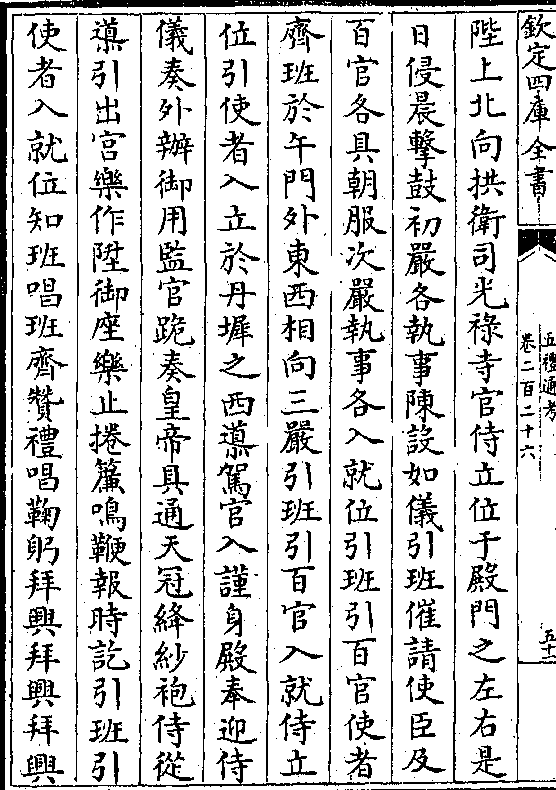 欽定四庫全書
五禮通考
卷二百二十六
五十二
陛上北向拱衛司光祿寺官侍立位于殿門之左右是
日侵晨擊鼓初嚴各執事陳設如儀引班催請使臣及
百官各具朝服次嚴執事各入就位引班引百官使者
齊班於午門外東西相向三嚴引班引百官入就侍立
位引使者入立於丹墀之西導駕官入謹身殿奉迎侍
儀奏外辦御用監官跪奏皇帝具通天冠絳紗袍侍從
導引出宮樂作陞御座樂止捲簾鳴鞭報時訖引班引
使者入就位知班唱班齊贊禮唱鞠躬拜興拜興拜興